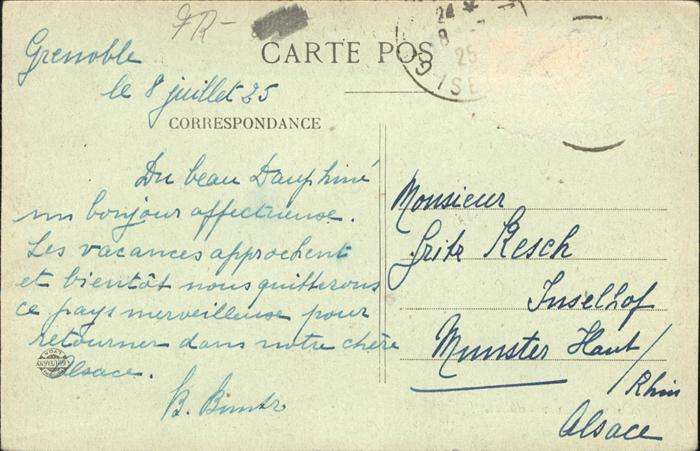 Grenoble
le 8 juillet 25
CARTE POS
24
8
25
ISE
CORRESPONDANCE
Du beau Dauphiné
un bonjour affectueuse.
Les vacances approchent
et bientôt nous quitterons
ce pays merveilleuse pour
retourner dans notre chère
Alsace.
Monsieur
Fritz Resch
Inselhof
Munster Haut/
Rhin
Alsace